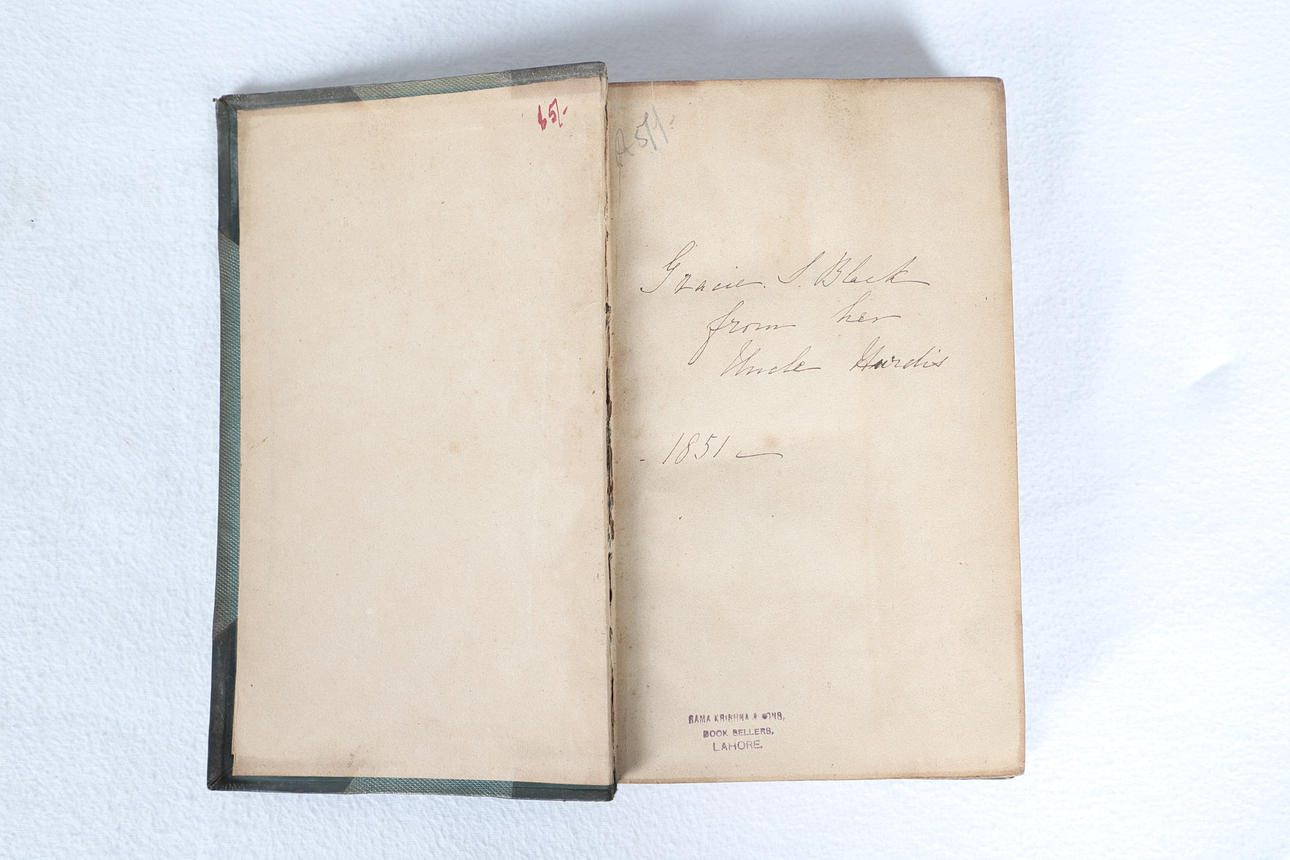 65/-
Gracie. S. Black
from her
Uncle Hurdis
1851 —
RAMA KRISHNA & SONS,
BOOK SELLERS,
LAHORE.